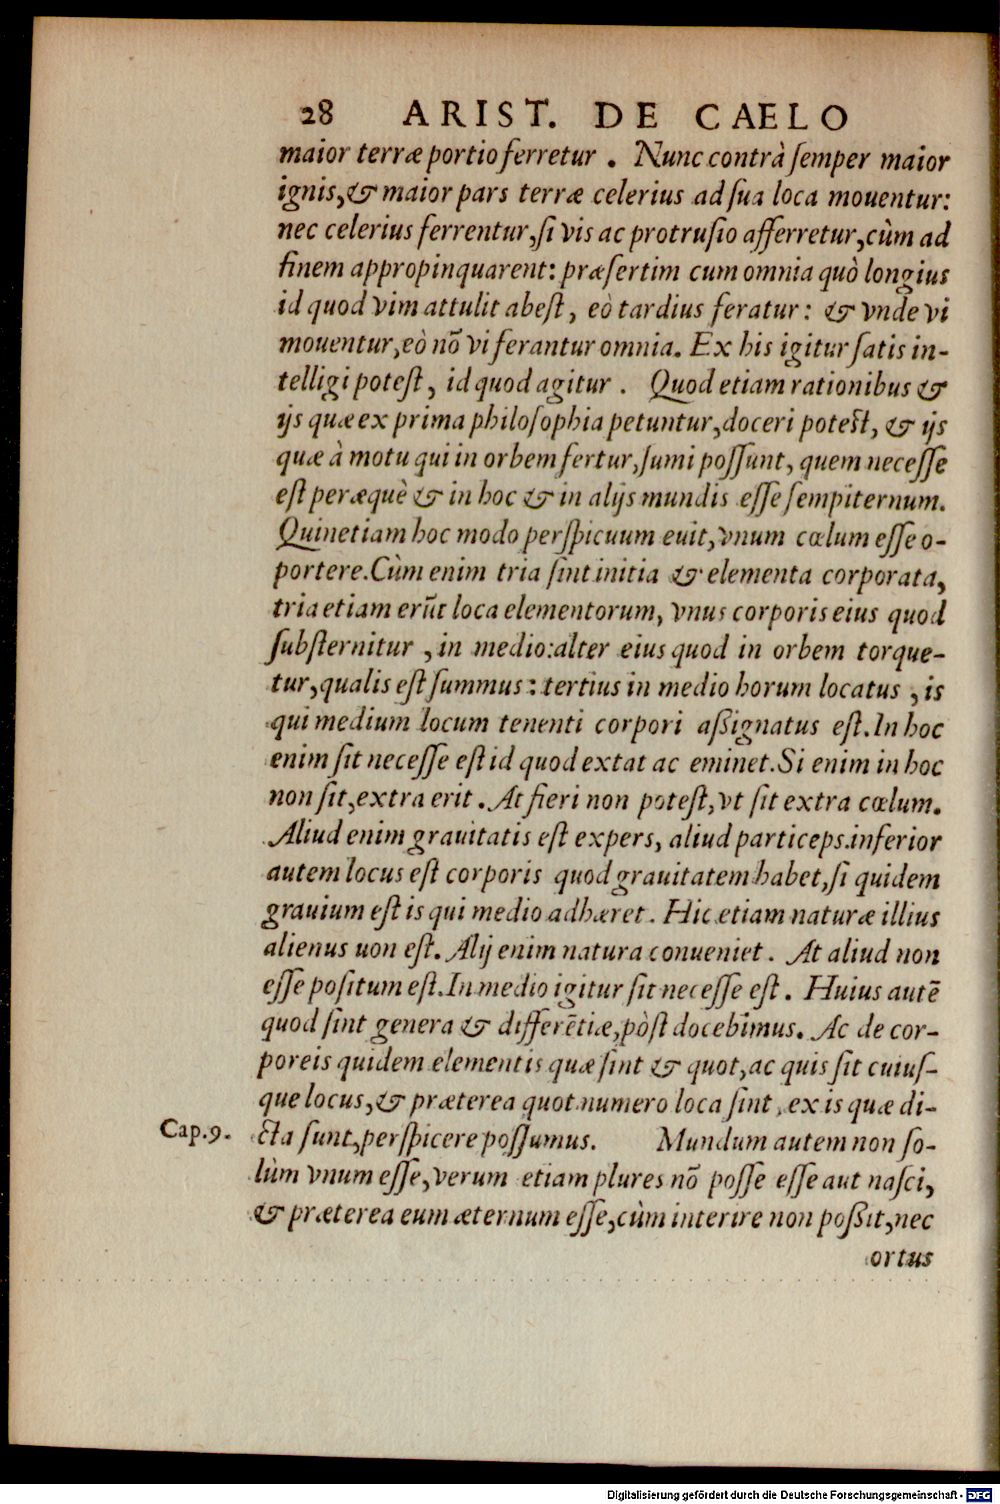 28 ARIST. DE CAELO
maior terræ portio ferretur . Nunc contrà ſemper maior
ignis,& maior pars terræ celerius ad ſua loca mouentur:
nec celerius ferrentur,ſi vis ac protruſio afferretur,cùm ad
finem appropinquarent: præſertim cum omnia quò longius
id quod vim attulit abeſt, eò tardius feratur: & vnde vi
mouentur,eò nõ vi ferantur omnia. Ex his igitur ſatis in-
telligi poteſt, id quod agitur . Quod etiam rationibus &
ijs quæ ex prima philoſophia petuntur,doceri poteſt, & ijs
quæ à motu qui in orbem fertur,ſumi poſſunt, quem neceſſe
eſt peræquè & in hoc & in alijs mundis eſſe ſempiternum.
Quinetiam hoc modo perſpicuum euit,vnum cœlum eſſe o-
portere.Cùm enim tria ſint initia & elementa corporata,
tria etiam erũt loca elementorum, vnus corporis eius quod
ſubſternitur , in medio:alter eius quod in orbem torque-
tur,qualis eſt ſummus: tertius in medio horum locatus , is
qui medium locum tenenti corpori aßignatus eſt.In hoc
enim ſit neceſſe eſt id quod extat ac eminet.Si enim in hoc
non ſit,extra erit . At fieri non poteſt,vt ſit extra cœlum.
Aliud enim grauitatis eſt expers, aliud particeps.inferior
autem locus eſt corporis quod grauitatem habet,ſi quidem
grauium eſt is qui medio adhæret . Hic etiam naturæ illius
alienus uon eſt. Alij enim natura conueniet . At aliud non
eſſe poſitum eſt.In medio igitur ſit neceſſe eſt . Huius autẽ
quod ſint genera & differẽtiæ,pòſt docebimus. Ac de cor-
poreis quidem elementis quæ ſint & quot,ac quis ſit cuiuſ-
que locus,& præterea quot numero loca ſint , ex is quæ di-
Cap.9. cta ſunt,perſpicere poſſumus. Mundum autem non ſo-
lùm vnum eſſe,verum etiam plures nõ poſſe eſſe aut naſci,
& præterea eum æternum eſſe,cùm interire non poßit,nec
ortus
Digitalisierung gefördert durch die Deutsche Forschungsgemeinschaft - DFG